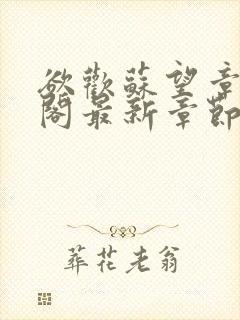 欲歡蘇望章
閣最新章節
葬花老翁